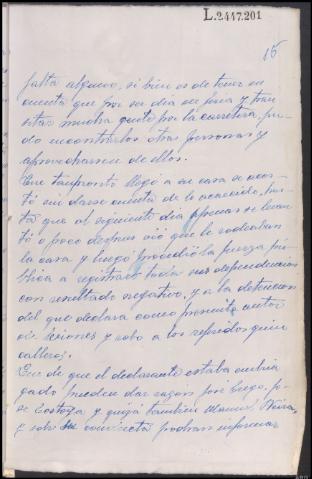 L.2447.201
15
falta alguno, si bien es de tener en
cuenta que por ser dia de feria y tran
sitar mucha gente por la carretera, pu-
do encontrarlos otras personas y
aprovecharse de ellos.
Que tan pronto llegó a su casa se acos-
tó sin darse cuenta de lo acaecido, has-
ta que al siguiente dia apenas se levan
tó o poco despues vió que le rodeaban
la casa y luego procedió la fuerza pú-
blica a registrar toda sus dependencias
con resultado negativo, y a la detencion
del que declara como presunto autor
de lesiones y robo a los referidos quin
calleros.
Que de que el declarante estaba embria
gado pueden dar razón José Grego, Jo-
se Costoya y quizá tambien Manuel
y sobre su conducta podran informar